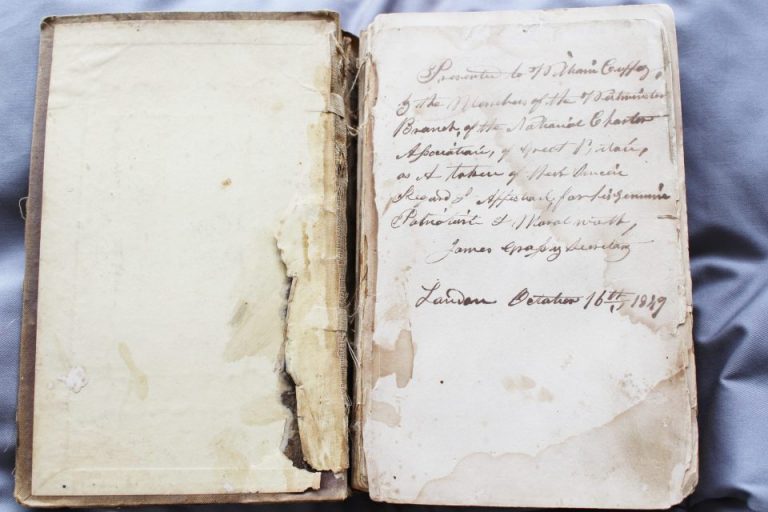 Presented to William Cuffay,
by the Members of the Westminster
Branch, of the National Charter
Association, of Great Britain,
as A token of their Sincere
Regard & Affection, for his genuine
Patriotism & Moral worth,
James Grassby Secretary
London October 16th 1849